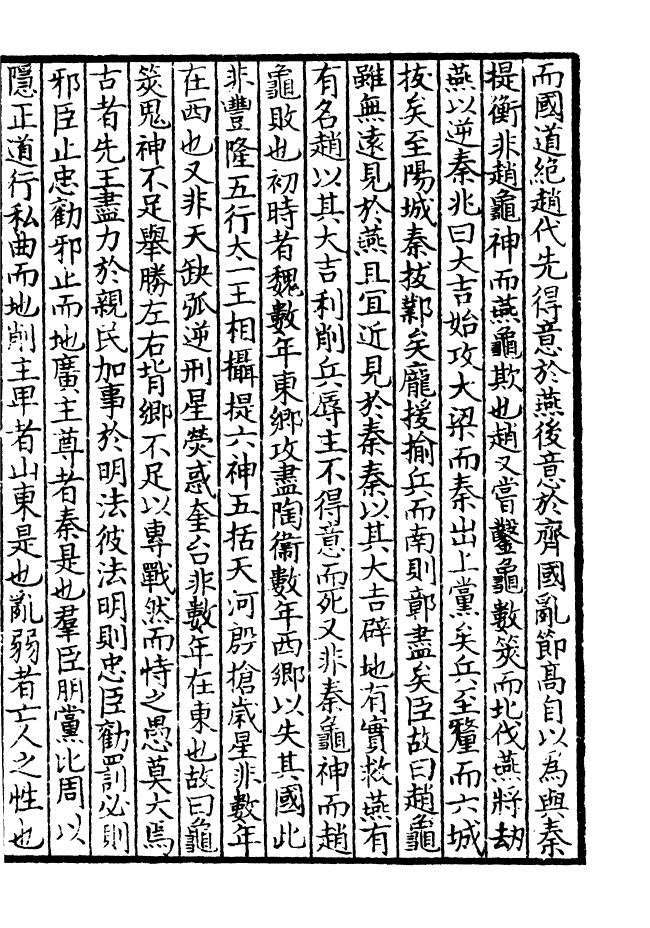 而國道絶趙代先得意於燕後意於齊國亂節髙自以為與秦
提衡非趙龜神而燕龜欺也趙又嘗鑿龜數筴而北伐燕將劫
燕以逆秦兆曰大吉始攻大梁而秦出上黨矣兵至釐而六城
拔矣至陽城秦拔鄴矣龐援揄兵而南則鄣盡矣臣故曰趙龜
雖無逺見於燕且宜近見於秦秦以其大吉辟地有實救燕有
有名趙以其大吉利削兵辱主不得意而死又非秦龜神而趙
龜敗也初時者魏數年東鄉攻盡陶衞數年西鄉以失其國此
非豐隆五行太一王相攝提六神五括天河殷搶歳星非數年
在西也又非天缺弧逆刑星熒惑奎台非數年在東也故曰龜
筴鬼神不足舉勝左右背鄉不足以專戰然而恃之愚莫大焉
古者先王盡力於親民加事於明法彼法明則忠臣勸罰必則
邪臣止忠勸邪止而地廣主尊者秦是也羣臣朋黨比周以
隱正道行私曲而地削主卑者山東是也亂弱者亡人之性也